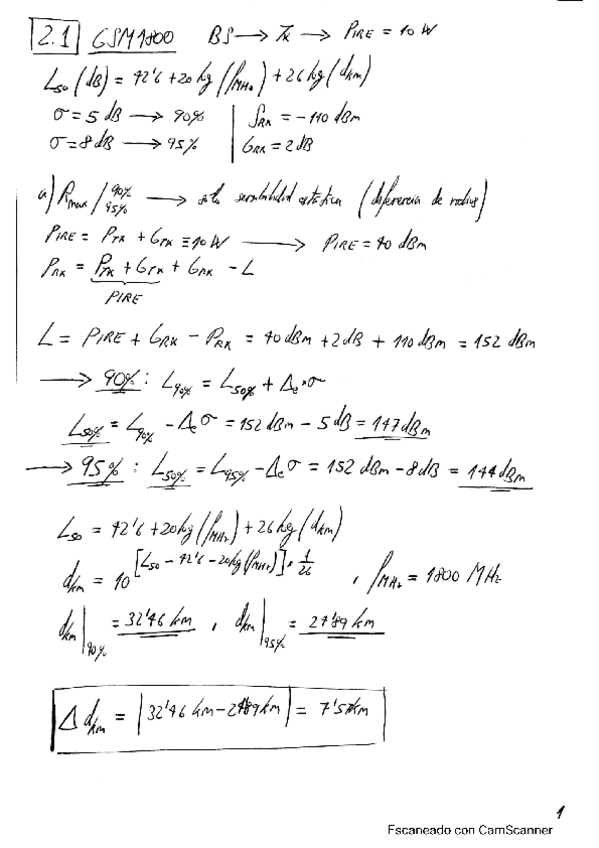 2.1 GSM1800 BS → Tx → PIRE = 10 W
L50 (dB) = 42'6 + 20 log (fMHz) + 26 log (dkm)
σ = 5 dB → 90% | SRX = -110 dBm
σ = 8 dB → 95% | GRX = 2 dB
a) Rmax / 90% 95% → solo sensibilidad estática (diferencia de radios)
PIRE = PTX + GTX ≡ 10 W → PIRE = 40 dBm
PRX = PTX + GTX + GRX - L
PIRE
L = PIRE + GRX - PRX = 40 dBm + 2 dB + 110 dBm = 152 dBm
→ 90% : L90% = L50% + Δe·σ
L50% = L90% - Δe σ = 152 dBm - 5 dB = 147 dBm
→ 95% : L50% = L95% - Δe σ = 152 dBm - 8 dB = 144 dBm
L50 = 42'6 + 20 log (fMHz) + 26 log (dkm)
dkm = 10^[L50 - 42'6 - 20 log (fMHz)]·1/26 , fMHz = 1800 MHz
dkm|90% = 32'46 km , dkm|95% = 24'89 km
Δdkm = |32'46 km - 24'89 km| = 7'57 km
1
Escaneado con CamScanner